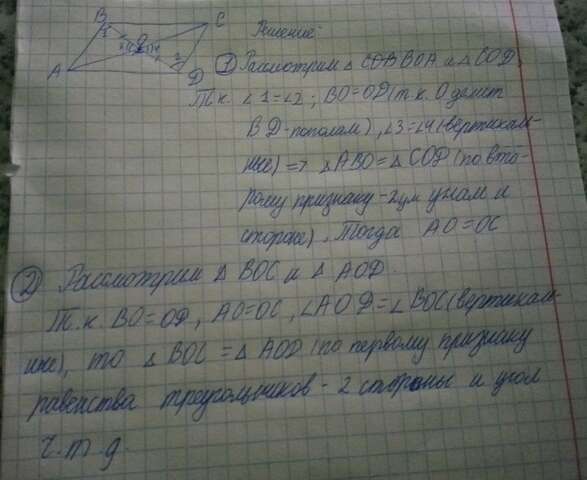 B C
1 O
3 4
2
A D
Решение:
① Рассмотрим △ BOA и △ COD.
Т.к. ∠1=∠2; BO=OD (т.к. O делит
BD-пополам), ∠3=∠4 (вертикаль-
ные) => △ABO = △COD (по вто-
рому признаку - 2ум углам и
стороне). Тогда AO=OC
② Рассмотрим △ BOC и △ AOD.
Т.к. BO=OD, AO=OC, ∠AOD=∠BOC (вертикаль-
ные), то △ BOC = △ AOD (по первому признаку
равенства треугольников - 2 стороны и угол
ч.т.д.